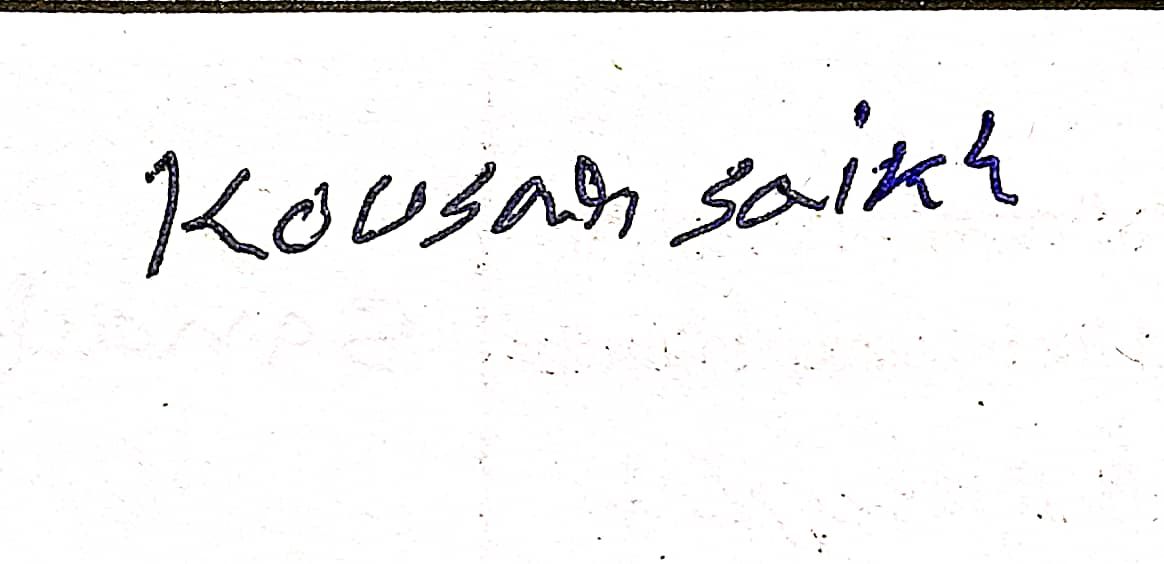 Kousar saikh